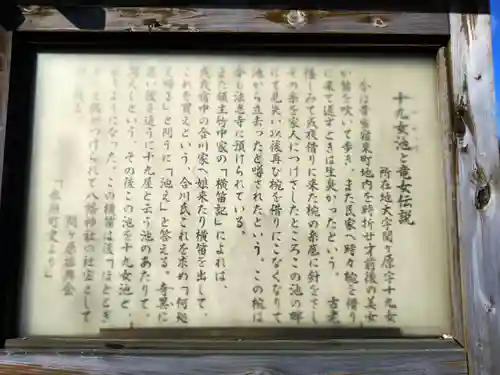 十九女池と竜女伝説
所在地大字関ケ原字十九女
今は昔当宿東町地内を時折廿才前後の美女
が笛を吹いて歩き、また民家へ時々椀を借り
に来て返すときは生臭かったという。古老
怪しみて或夜借りに来た椀の糸底に針をさし
その糸を家人につけさしたところこの池の畔
にて見失い以後再び椀を借りにこなくなりて
池から立去ったと噂されたという。この椀は
今も法忍寺に預けられている。
また領主竹中家の「横笛記」によれば、
或夜宿中の合川家へ娘来たり横笛を出して、
これを買えという、合川氏これを求め「何処
え帰る」と問うに「池え」と答える、奇異に
思い後を追うに十九屋と云う池のあたりて、
消えたという。その後この池を十九女池と、
云うようになった。この横笛は後「ほととぎ
す」と偶せつけられて八幡神社の社宝として
残る
関ケ原振興会
「関ケ原町史より」